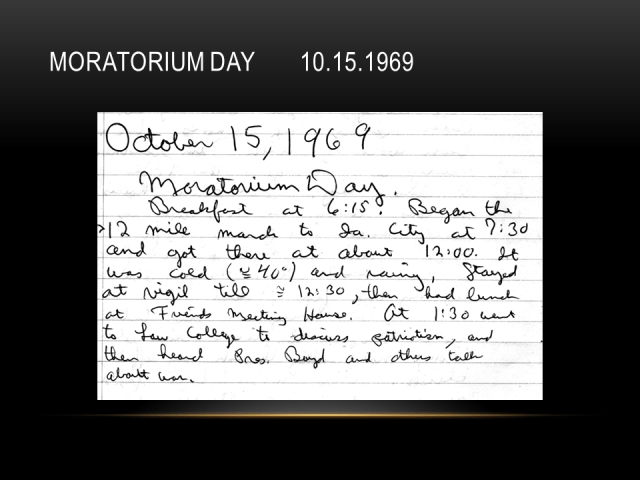 MORATORIUM DAY 10.15.1969
October 15, 1969
Moratorium Day.
Breakfast at 6:15. Began the
>12 mile march to Ia. City at 7:30
and got there at about 12:00. It
was cold (≅ 40°) and rainy, Stayed
at vigil till ≅ 12:30, then had lunch
at Friends Meeting House. At 1:30 went
to Law College to discuss patriotism, and
then heard Pres. Boyd and others talk
about war.